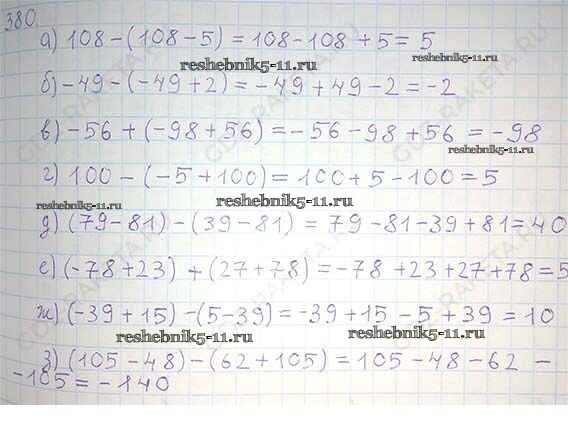 380.
а) 108-(108-5)=108-108+5=5
reshebnik5-11.ru
б) -49-(-49+2)=-49+49-2=-2
в) -56+(-98+56)=-56-98+56=-98
reshebnik5-11.ru
г) 100-(-5+100)=100+5-100=5
reshebnik5-11.ru
reshebnik5-11.ru
д) (79-81)-(39-81)=79-81-39+81=40
е) (-78+23)+(27+78)=-78+23+27+78=5
ж) (-39+15)-(5-39)=-39+15-5+39=10
reshebnik5-11.ru
reshebnik5-11.ru
з) (105-48)-(62+105)=105-48-62-
-105=-140